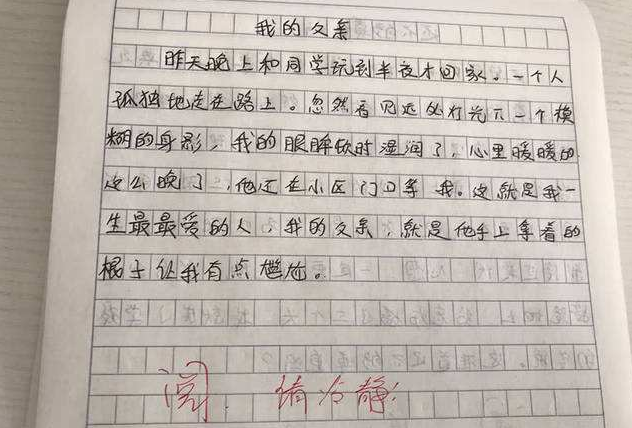 我的父亲
昨天晚上和同学玩到半夜才回家。一个人
孤独地走在路上。忽然看见远处灯光下一个模
糊的身影,我的眼眸顿时湿润了,心里暖暖的
这么晚了,他还在小区门口等我。这就是我一
生最最爱的人,我的父亲,就是他手上拿着的
棍子让我有点尴尬。
阅. 请冷静!